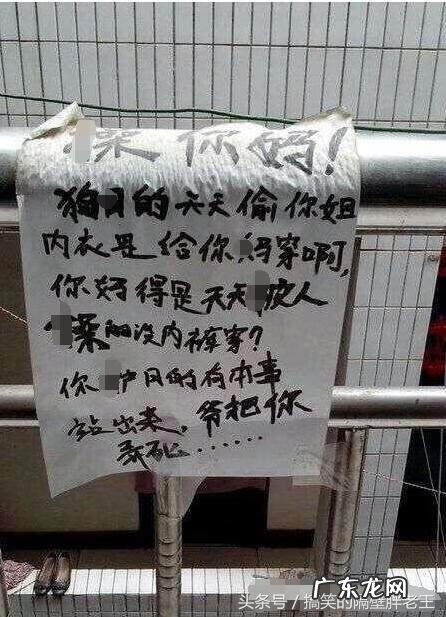 你妈!
狗 的天天偷你姐
内衣是给你 穿啊,
你妈得是天天 人
没内裤穿?
你 日的有本事
站出来,爷把你
弄死......
广东龙网
头条号/搞笑的隔壁胖老王